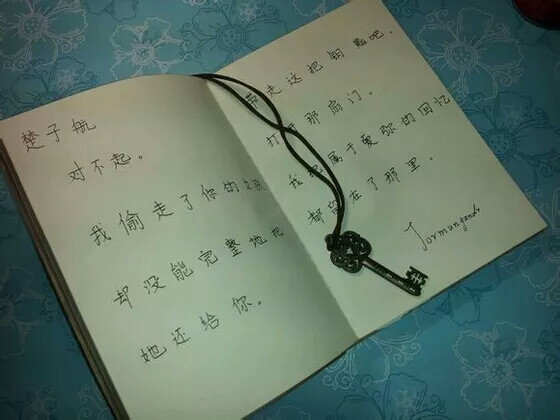 楚子航
对不起。
我偷走了你的
却没能完整地把
她还给你。
带走这把钥匙吧。
打开那扇门。
我把属于夏弥的回忆
都留在了那里。
Jormungandr